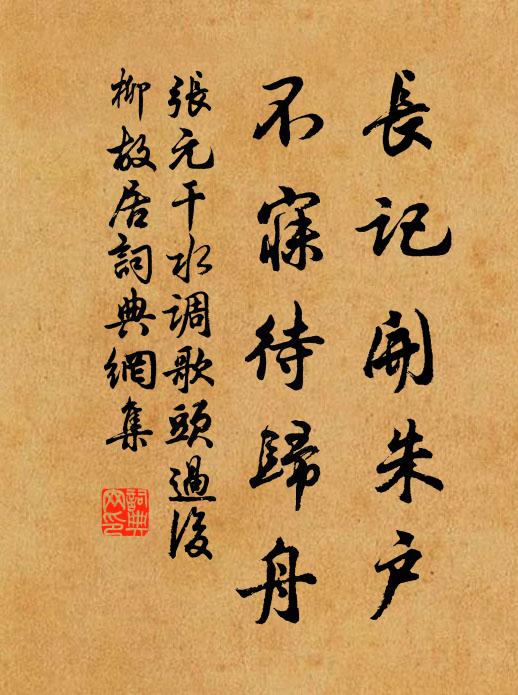 長記開朱户
不寐待歸舟
張元干水调歌頭過後
柳故居詞典網集
詞典
网印